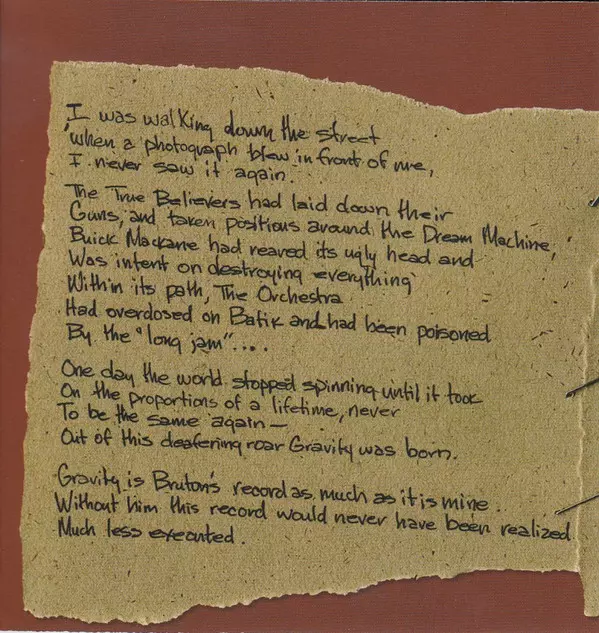 I was walking down the street
when a photograph blew in front of me,
I never saw it again.
The True Believers had laid down their
Guns, and taken positions around the Dream Machine,
Buick Mackane had reaved its ugly head and
Was intent on destroying everything
Within its path, The Orchestra
Had overdosed on Batik and had been poisoned
By the "long jam"....
One day the world stopped spinning until it took
On the proportions of a lifetime, never
To be the same again—
Out of this deafening roar Gravity was born.
Gravity is Bruton's record as much as it is mine.
Without him this record would never have been realized
Much less executed.